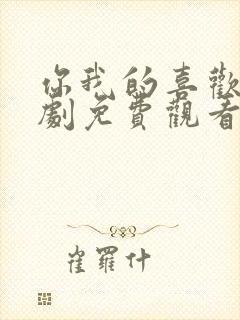 你我的喜歡
劇免費觀看
崔羅什